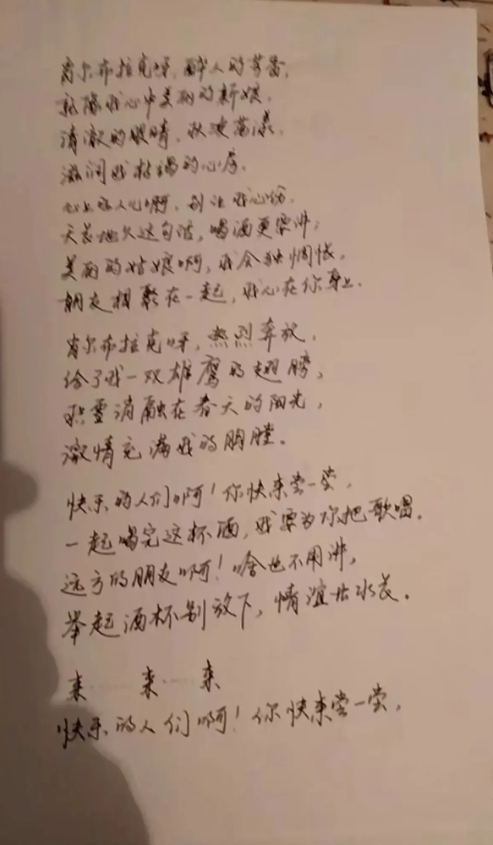 肖尔布拉克呀，醉人的芳香，
就像我心中美丽的新娘，
清澈的眼睛，秋波荡漾，
滋润我枯竭的心房。
心上的人儿啊，别让我心伤，
天长地久这句话，喝酒更要讲；
美丽的姑娘啊，我会独惆怅，
朋友相聚在一起，我心在你身上。
肖尔布拉克呀，热烈奔放，
给了我一双雄鹰的翅膀，
积雪消融在春天的阳光，
激情充满我的胸膛。
快乐的人们啊！你快来尝一尝，
一起喝完这杯酒，我要为你把歌唱。
远方的朋友啊！啥也不用讲，
举起酒杯别放下，情谊比水长。
来……来……来
快乐的人们啊！你快来尝一尝，